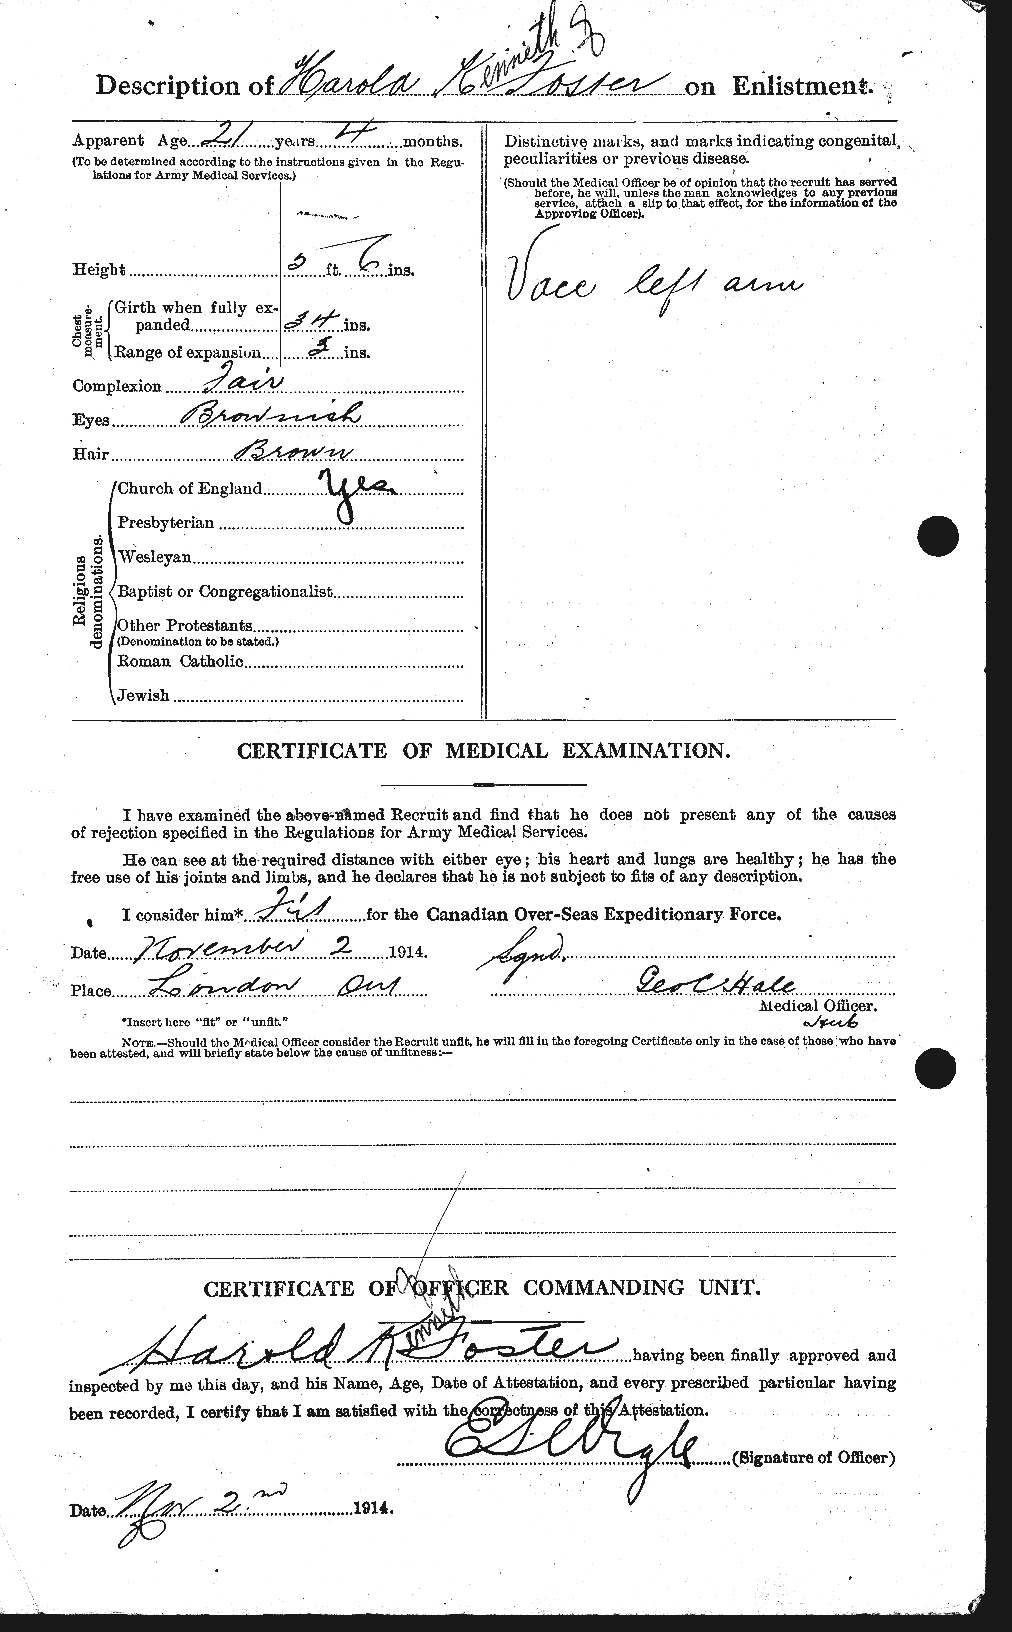 Description of Harold Kenneth Foster on Enlistment.
Apparent Age 21 years 4 months.
(To be determined according to the instructions given in the Regu-
lations for Army Medical Services.)
Height 5 ft. 6 ins.
Chest measure-
ment.
Girth when fully ex-
panded 34 ins.
Range of expansion 3 ins.
Complexion Fair
Eyes Brownish
Hair Brown
Religious
denominations.
Church of England Yes
Presbyterian
Wesleyan
Baptist or Congregationalist
Other Protestants
(Denomination to be stated.)
Roman Catholic
Jewish
Distinctive marks, and marks indicating congenital
peculiarities or previous disease.
(Should the Medical Officer be of opinion that the recruit has served
before, he will, unless the man acknowledges to any previous
service, attach a slip to that effect, for the information of the
Approving Officer).
Vacc left arm
CERTIFICATE OF MEDICAL EXAMINATION.
I have examined the above-named Recruit and find that he does not present any of the causes
of rejection specified in the Regulations for Army Medical Services.
He can see at the required distance with either eye; his heart and lungs are healthy; he has the
free use of his joints and limbs, and he declares that he is not subject to fits of any description.
I consider him* Fit for the Canadian Over-Seas Expeditionary Force.
Date November 2 1914.
Sgnd.
Place London Ont
Geo C Hale
Medical Officer.
*Insert here "fit" or "unfit."
NOTE.—Should the Medical Officer consider the Recruit unfit, he will fill in the foregoing Certificate only in the case of those who have
been attested, and will briefly state below the cause of unfitness:—
CERTIFICATE OF OFFICER COMMANDING UNIT.
Harold Kenneth Foster having been finally approved and
inspected by me this day, and his Name, Age, Date of Attestation, and every prescribed particular having
been recorded, I certify that I am satisfied with the correctness of this Attestation.
E S Wigle (Signature of Officer)
Date Nov 2nd 1914.